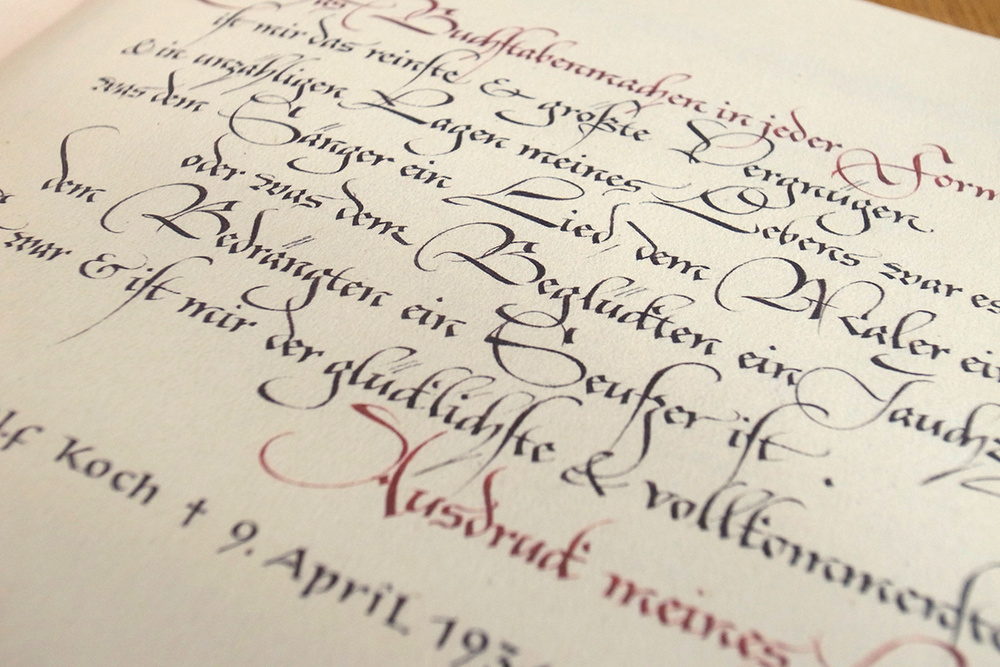 Buchstabenmachen in jeder Form
ist mir das reinste & größte Vergnügen
& in unzähligen Lagen meines Lebens war es
was dem Sänger ein Lied, dem Maler ein
oder was dem Beglückten ein Jauchz
dem Bedrängten ein Seufzer ist.
war & ist mir der glücklichste & vollkommenste
Ausdruck meines
lf Koch † 9. April 193